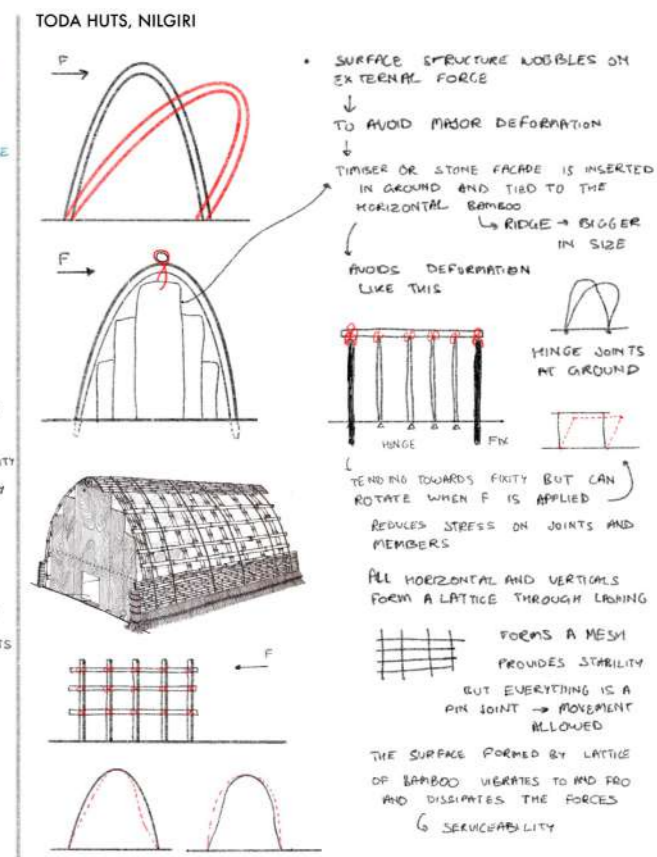 TODA HUTS, NILGIRI
F
• SURFACE STRUCTURE WOBBLES ON
EXTERNAL FORCE
↓
TO AVOID MAJOR DEFORMATION
↓
TIMBER OR STONE FACADE IS INSERTED
IN GROUND AND TIED TO THE
HORIZONTAL BAMBOO
↳ RIDGE → BIGGER
IN SIZE
F
AVOIDS DEFORMATION
LIKE THIS
HINGE JOINTS
AT GROUND
HINGE
FIX
TENDING TOWARDS FIXITY BUT CAN
ROTATE WHEN F IS APPLIED
REDUCES STRESS ON JOINTS AND
MEMBERS
ALL HORIZONTAL AND VERTICALS
FORM A LATTICE THROUGH LASHING
F
FORMS A MESH
PROVIDES STABILITY
BUT EVERYTHING IS A
PIN JOINT → MOVEMENT
ALLOWED
THE SURFACE FORMED BY LATTICE
OF BAMBOO VIBRATES TO AND FRO
AND DISSIPATES THE FORCES
↳ SERVICEABILITY